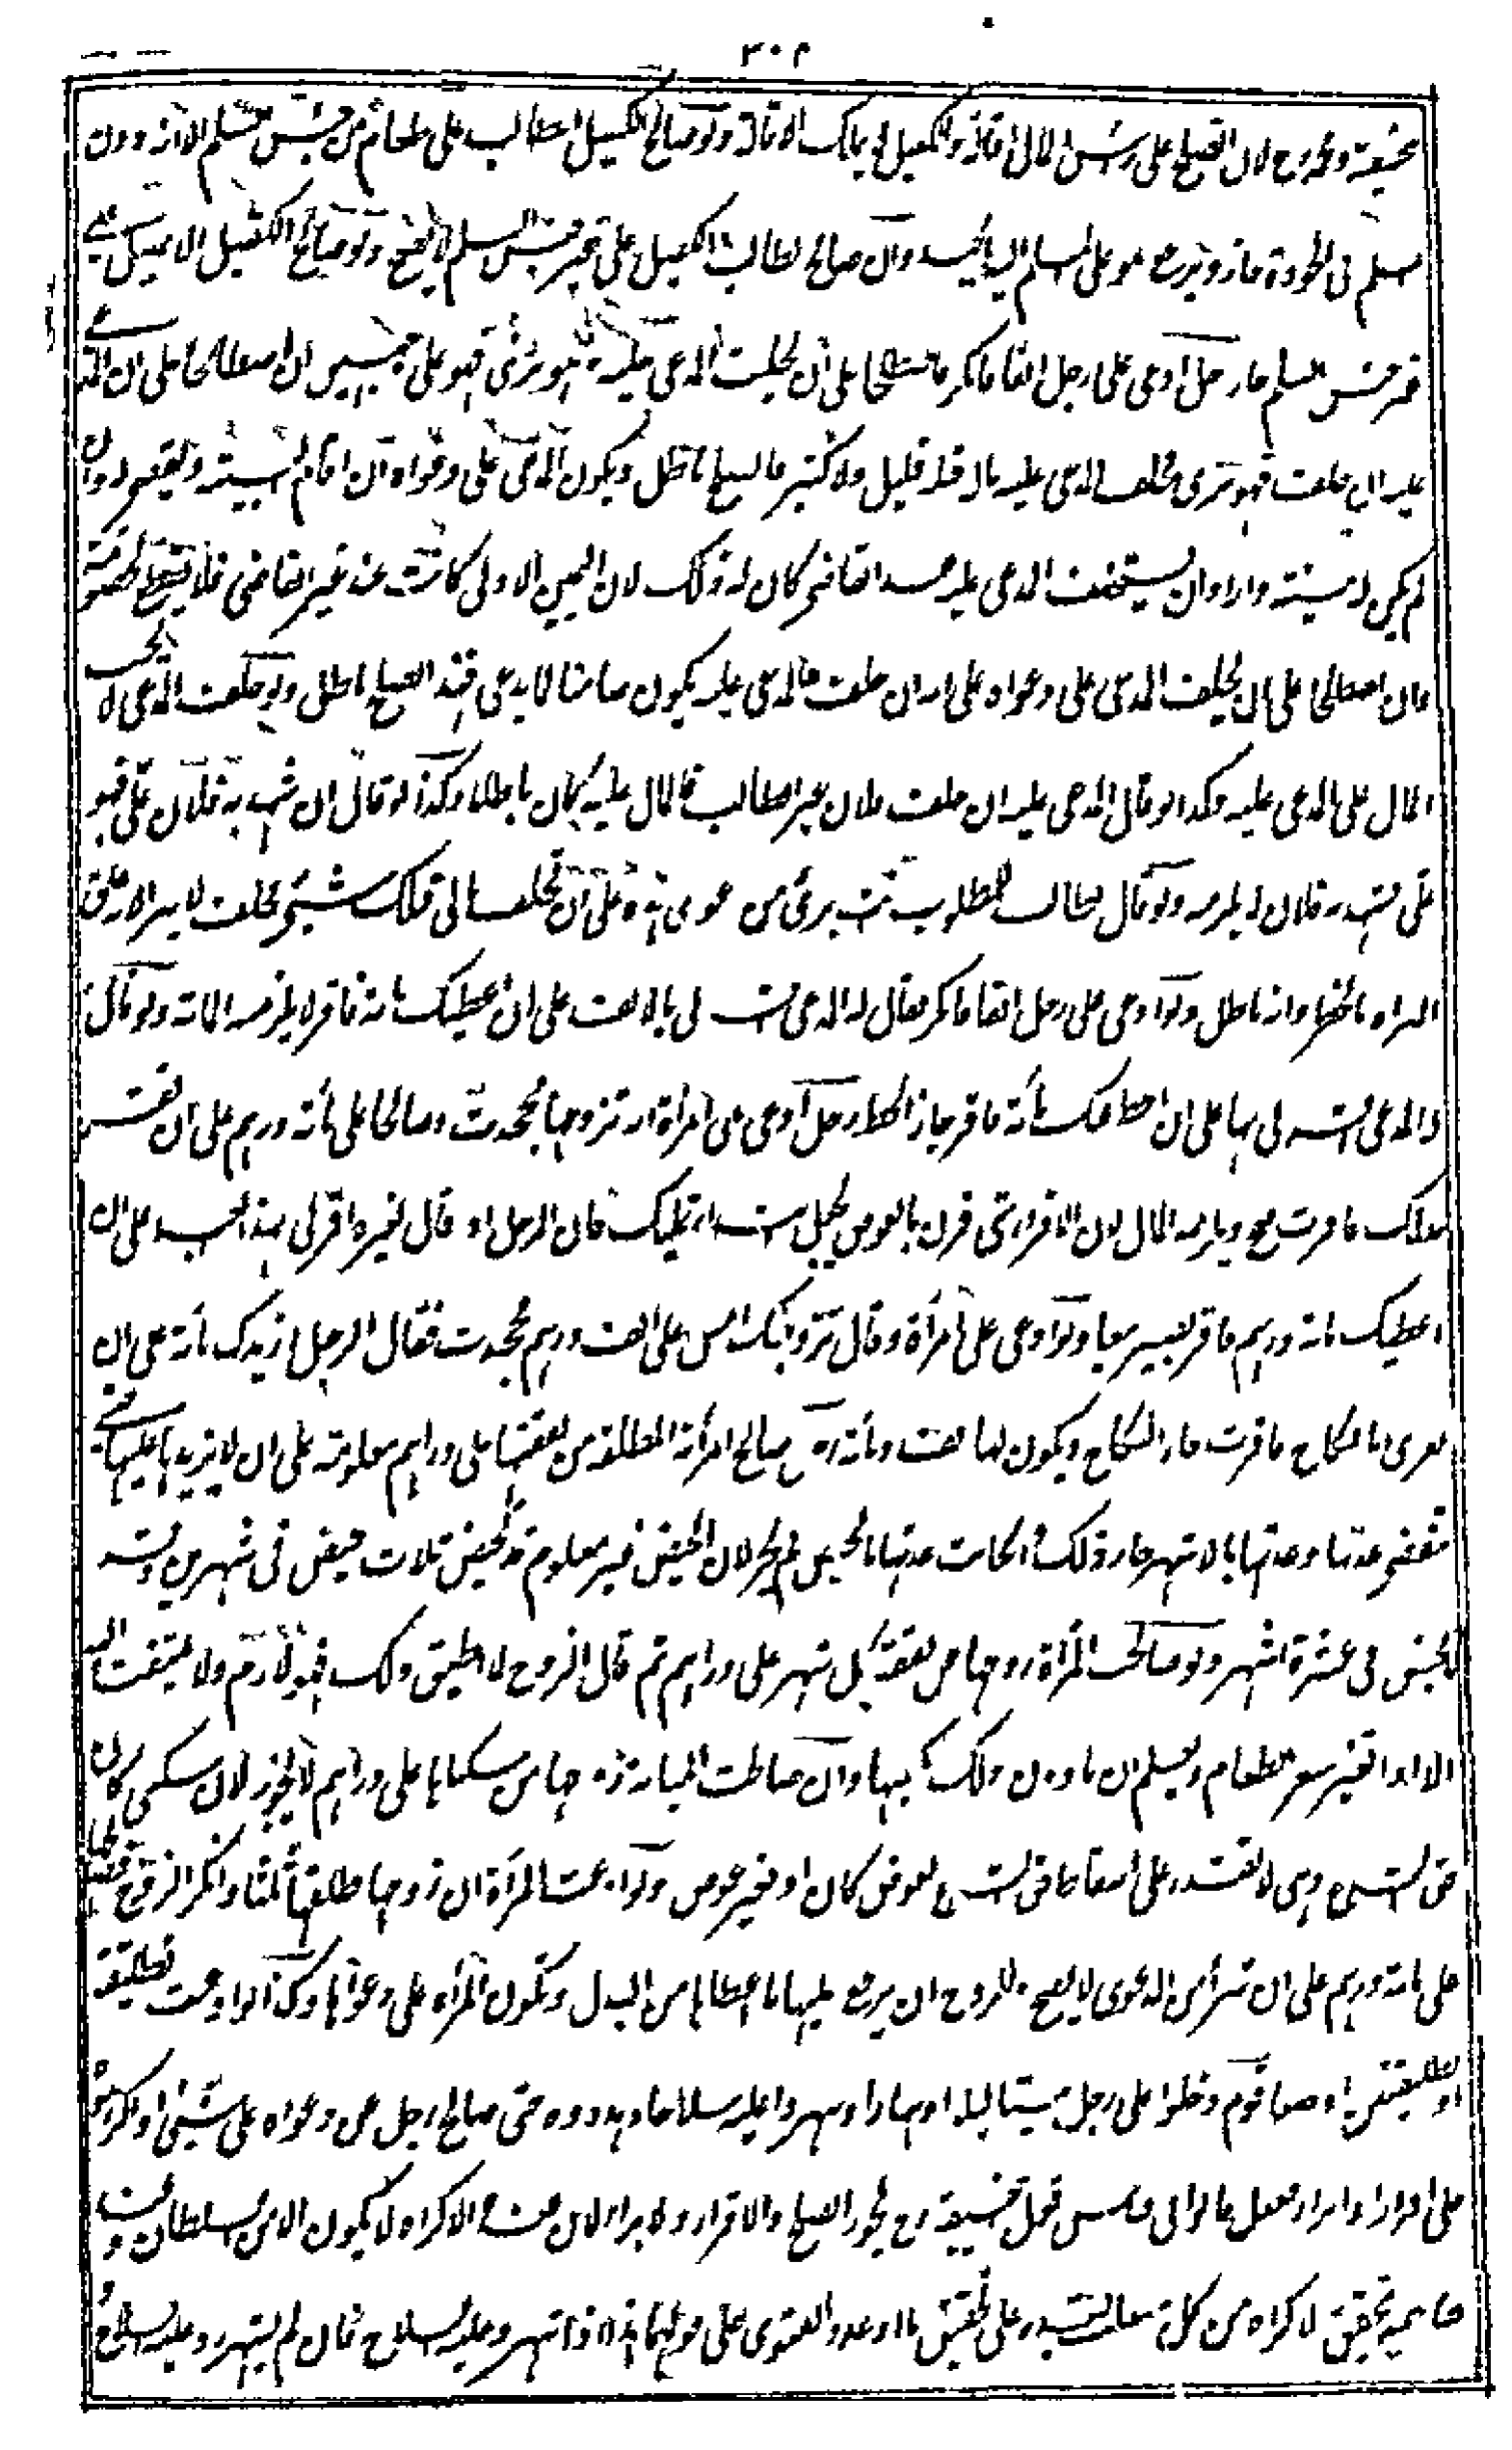 ٣٠٢
حنيفة ومحمد رح لان الصلح على رأس المال اقالة والكفيل لا يملك الاقالة ولو صالح الكفيل الطالب على طعام من جنس المسلم الا انه دون
المسلم فى الجودة جاز ويرجع هو على المسلم اليه بالجيد وان صالح الطالب الكفيل على غير جنس المسلم لا يصح ولو صالح الكفيل الاصيل على
غير جنس المسلم جاز رجل ادعى على رجل الفا فانكر فاصطلحا على ان يحلف المدعى عليه فهو برئ فهو على وجهين ان اصطلحا على ان المدعى
عليه ان حلف فهو برى فحلف المدعى عليه ما له قبله قليل ولا كثير فالصلح باطل ويكون المدعى على دعواه ان اقام البينة والا وان
لم يكن له بينة واراد ان يستحلف المدعى عليه عند القاضى كان له ذلك لان اليمين الاولى كانت عند غير القاضى فلا تقطع الخصومة
فان اصطلحا على ان يحلف المدعى على دعواه على انه ان حلف فالمدعى عليه يكون ضامنا لما يدعى فهذا الصلح باطل ولو حلف المدعى لا يجب
المال على المدعى عليه وكذا لو قال المدعى عليه ان حلف فلان غير الطالب فالمال عليه كان باطلا وكذا لو قال ان شهد به فلان على فهو
على فشهد به فلان لم يلزمه ولو قال الطالب للمطلوب انت برئ من دعوى هذه على ان تحلف مالى قبلك شيء فحلف لا يبرأ لانه علق
البراءة بالخطر وانه باطل ولو ادعى على رجل الفا فانكر فقال له المدعى اقر لى بالالف على ان اعطيك مائة فاقر لا يلزمه المائة ولو قال
المدعى اقر لى بها على ان احط عنك مائة فاقر جاز الحط رجل ادعى على امرأة انه تزوجها فجحدت وصالحها على مائة درهم على ان تقر
بذلك فاقرت صح ويلزمه المال لان الاقرار متى قرن بالعوض يجعل ابتداء تمليك فان الرجل لو قال لغيره اقر لى بهذا العبد على ان
اعطيك مائة درهم فاقر يصير بيعا ولو ادعى على امرأة وقال تزوجتك امس على الف درهم فجحدت فقال الرجل ازيدك مائة على ان
تقرى لى بالنكاح فاقرت جاز النكاح ويكون لها الف ومائة صالح امرأته المطلقة من نفقتها على دراهم معلومة على ان لا يزيدها عليها حتى
تنقضى عدتها وعدتها بالاشهر جاز ذلك وان كانت عدتها بالحيض لم يجز لان الحيض غير معلوم قد تحيض ثلاث حيض فى شهرين وقد
لا تحيض فى عشرة اشهر ولو صالحت المرأة زوجها من نفقة كل شهر على دراهم ثم قال الزوج لا اطيق ذلك فهو لازم ولا يلتفت اليه
الا اذا تغير سعر الطعام ويعلم ان ما دون ذلك يكفيها وان صالحت المبانة زوجها من سكناها على دراهم لا يجوز لان السكنى كان
حق الشرع وهى لا تقدر على اسقاط حق الشرع بعوض كان او بغير عوض ولو ادعت المرأة ان زوجها طلقها ثلثا وانكر الزوج فصالحها
على مائة درهم على ان تبرأ من الدعوى لا يصح وللزوج ان يرجع عليها بما اعطاها من البدل وتكون المرأة على دعواها وكذا لو ادعت تطليقة
او تطليقتين او خلعا قوم دخلوا على رجل بيتا ليلا او نهارا وشهروا عليه سلاحا وهددوه حتى صالح رجل عن دعواه على شيء او اكرهوه
على اقرار او ابراء ففعل قالوا فى قياس قول ابى حنيفة رح يجوز الصلح والاقرار والابراء لان عنده الاكراه لا يكون الا من السلطان وعند
صاحبيه يتحقق الاكراه من كل متغلب يقدر على تحقيق ما اوعد والفتوى على قولهما هذا اذا شهروا عليه السلاح فان لم يشهروا عليه السلاح و